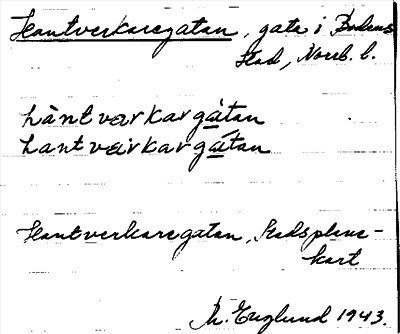 Hantverkaregatan, gata i Bodens
stad, Norrb. l.
hàntværkargàtan
hantværkargátan
Hantverkaregatan, Stadsplane-
kart
Th. Englund 1943.